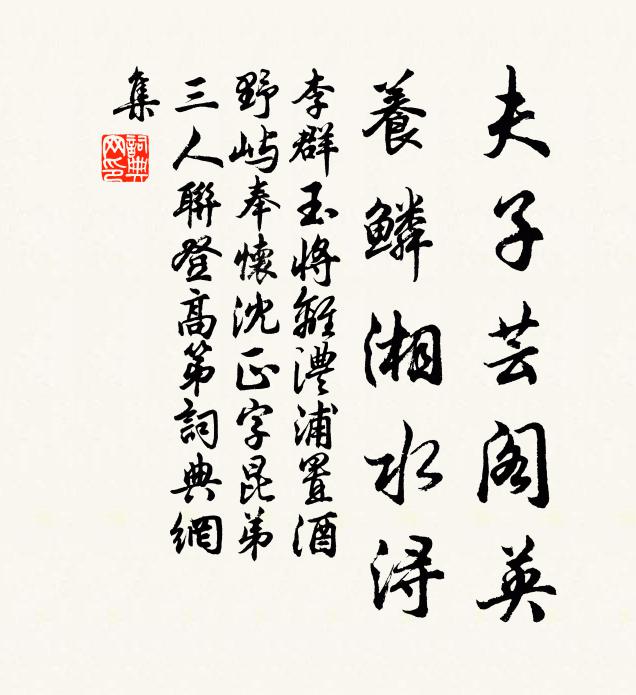 夫子芸阁英
養鱗湘水浔
李群玉将離澧浦置酒
野屿奉懷沈正字昆弟
三人聯登高第詞典網
集
詞典网印